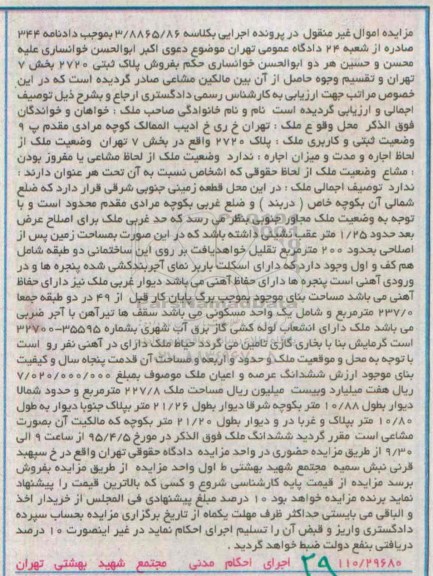 مزایده اموال غیر منقول در پرونده اجرایی بکلاسه ۳/۸۸۶۵/۸۶ بموجب دادنامه ۳۴۴
صادره از شعبه ۲۴ دادگاه عمومی تهران موضوع دعوی اکبر ابوالحسن خوانساری علیه
محسن و حسین هر دو ابوالحسن خوانساری حکم بفروش پلاک ثبتی ۲۷۲۰ بخش ۷
تهران و تقسیم وجوه حاصل از آن بین مالکین مشاعی صادر گردیده است که در این
خصوص مراتب جهت ارزیابی به کارشناس رسمی دادگستری ارجاع و بشرح ذیل توصیف
اجمالی و ارزیابی گردیده است نام و نام خانوادگی صاحب ملک : خواهان و خواندگان
فوق الذکر محل وقوع ملک : تهران خ ری خ ادیب الممالک کوچه مرادی مقدم پ ۹
وضعیت ثبتی و کاربری ملک : پلاک ۲۷۲۰ واقع در بخش ۷ تهران وضعیت ملک از
لحاظ اجاره و مدت و میزان اجاره : ندارد وضعیت ملک از لحاظ مشاعی یا مفروز بودن
: مشاع وضعیت ملک از لحاظ حقوقی که اشخاص نسبت به آن تحت هر عنوان دارند :
ندارد توصیف اجمالی ملک : در این محل قطعه زمینی جنوبی شرقی قرار دارد که ضلع
شمالی آن بکوچه خاص ( دربند ) و ضلع غربی بکوچه مرادی مقدم محدود است و با
توجه به وضعیت ملک مجاور جنوبی بنظر می رسد که حد غربی ملک برای اصلاح عرض
بعد حدود ۱/۲۵ متر عقب نشینی داشته باشد که در این صورت بمساحت زمین پس از
اصلاحی بحدود ۲۰۰ مترمربع تقلیل خواهدیافت بر روی این ساختمانی دو طبقه شامل
هم کف و اول وجود دارد که دارای اسکلت باربر نمای آجربندکشی شده پنجره ها و در
ورودی آهنی است پنجره ها دارای حفاظ آهنی می باشد دیوار غربی ملک نیز دارای حفاظ
آهنی می باشد مساحت بنای موجود بموجب برگ پایان کار قبل از ۴۹ در دو طبقه جمعا
۲۳۷/۰ مترمربع و شامل یک واحد مسکونی می باشد سقف ها تیرآهن با آجر ضربی
می باشد ملک دارای انشعاب لوله کشی گاز برق آب شهری بشماره ۳۵۵۹۵-۳۲۷۰۰
است گرمایش بنا با بخاری گازی تامین می گردد حیاط ملک دارای در آهنی نفر رو است
با توجه به محل و موقعیت ملک و حدود و اربعه و مساحت آن قدمت پنجاه سال و کیفیت
بنای موجود ارزش ششدانگ عرصه و اعیان ملک موصوف بمبلغ ۷/۰۲۰/۰۰۰/۰۰۰
ریال هفت میلیارد وبیست میلیون ریال مساحت ملک ۲۲۷/۸ مترمربع و حدود شمالا
دیوار بطول ۱۰/۸۸ متر بکوچه شرقا دیوار بطول ۲۱/۲۶ متر بپلاک جنوبا دیوار به طول
۱۰/۸۰ متر بپلاک و غربا در و دیوار بطول ۲۱/۲۰ متر بکوچه که مالکیت آن بصورت
مشاعی است مقرر گردید ششدانگ ملک فوق الذکر در مورخ ۹۵/۴/۵ از ساعت ۹ الی
۹/۳۰ از طریق مزایده حضوری در واحد مزایده دادگاه حقوقی تهران واقع در خ سپهبد
قرنی نبش سمیه مجتمع شهید بهشتی ط اول واحد مزایده از طریق مزایده بفروش
برسد مزایده از قیمت پایه کارشناسی شروع و کسی که بالاترین قیمت را پیشنهاد
نماید برنده مزایده خواهد بود ۱۰ درصد مبلغ پیشنهادی فی المجلس از خریدار اخذ
و الباقی می بایستی حداکثر ظرف مهلت یکماه از تاریخ برگزاری مزایده بحساب سپرده
دادگستری واریز و قبض آن را تسلیم اجرای احکام نماید در غیر اینصورت ۱۰ درصد
دریافتی بنفع دولت ضبط خواهد گردید .
۱۱۰/۲۹۶۸۰ اجرای احکام مدنی مجتمع شهید بهشتی تهران
۲۹